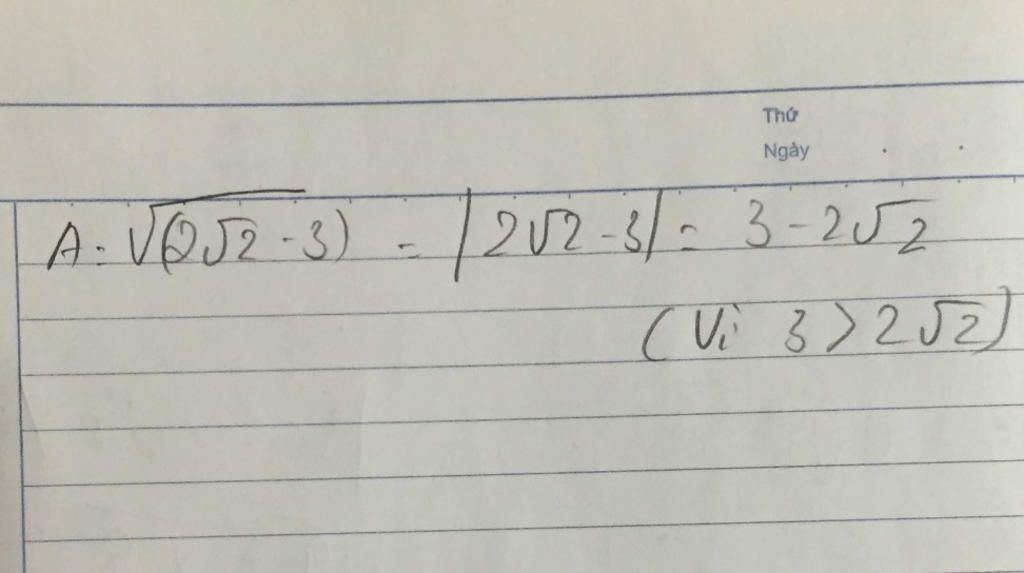 Thứ
Ngày
A = √(2√2 - 3) = |2√2 - 3| = 3 - 2√2
(Vì 3 > 2√2)